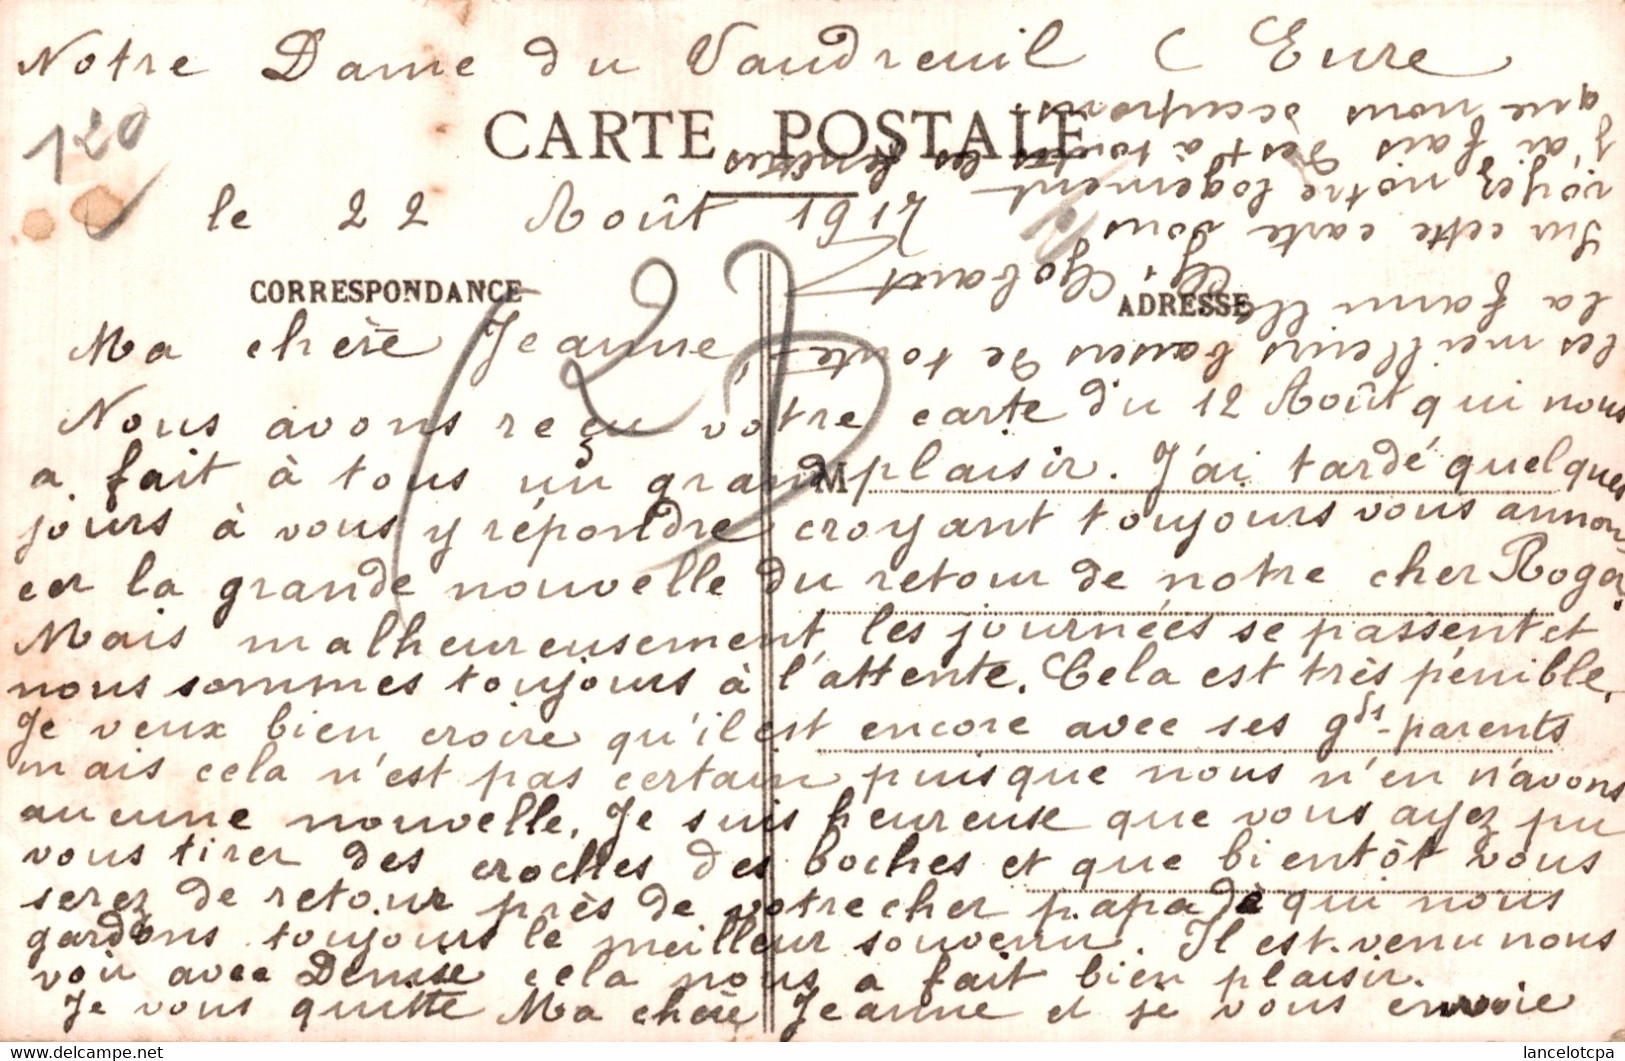 Notre Dame du Vaudreuil (Eure
120
CARTE POSTALE
le 22 Août 1917
CORRESPONDANCE
ADRESSE
M
Ma chère Jeanne,
Nous avons reçu votre carte du 12 Août qui nous
a fait à tous un grand plaisir. J'ai tardé quelques
jours à vous y répondre croyant toujours vous annon-
cer la grande nouvelle du retour de notre cher Roger.
Mais malheureusement les journées se passent et
nous sommes toujours à l'attente. Cela est très pénible.
Je veux bien croire qu'il est encore avec ses gds-parents
mais cela n'est pas certain puisque nous n'en n'avons
aucune nouvelle. Je suis heureuse que vous ayez pu
vous tirer des croches des boches et que bientôt vous
serez de retour près de votre cher papa de qui nous
gardons toujours le meilleur souvenir. Il est venu nous
voir avec Denise cela nous a fait bien plaisir.
Je vous quitte Ma chère Jeanne et je vous envoie
les meilleurs baisers de toute
la famille
G. Gobaut
Sur cette carte vous
voyez notre logement
j'ai fait des + à toutes les fenêtres
que nous occupons
lancelotcpa
www.delcampe.net